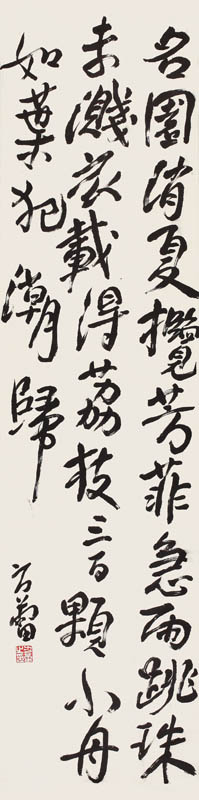 名園消夏攬芳菲急雨跳珠
未濺衣載得荔枝三百顆小舟
如葉犯潮歸